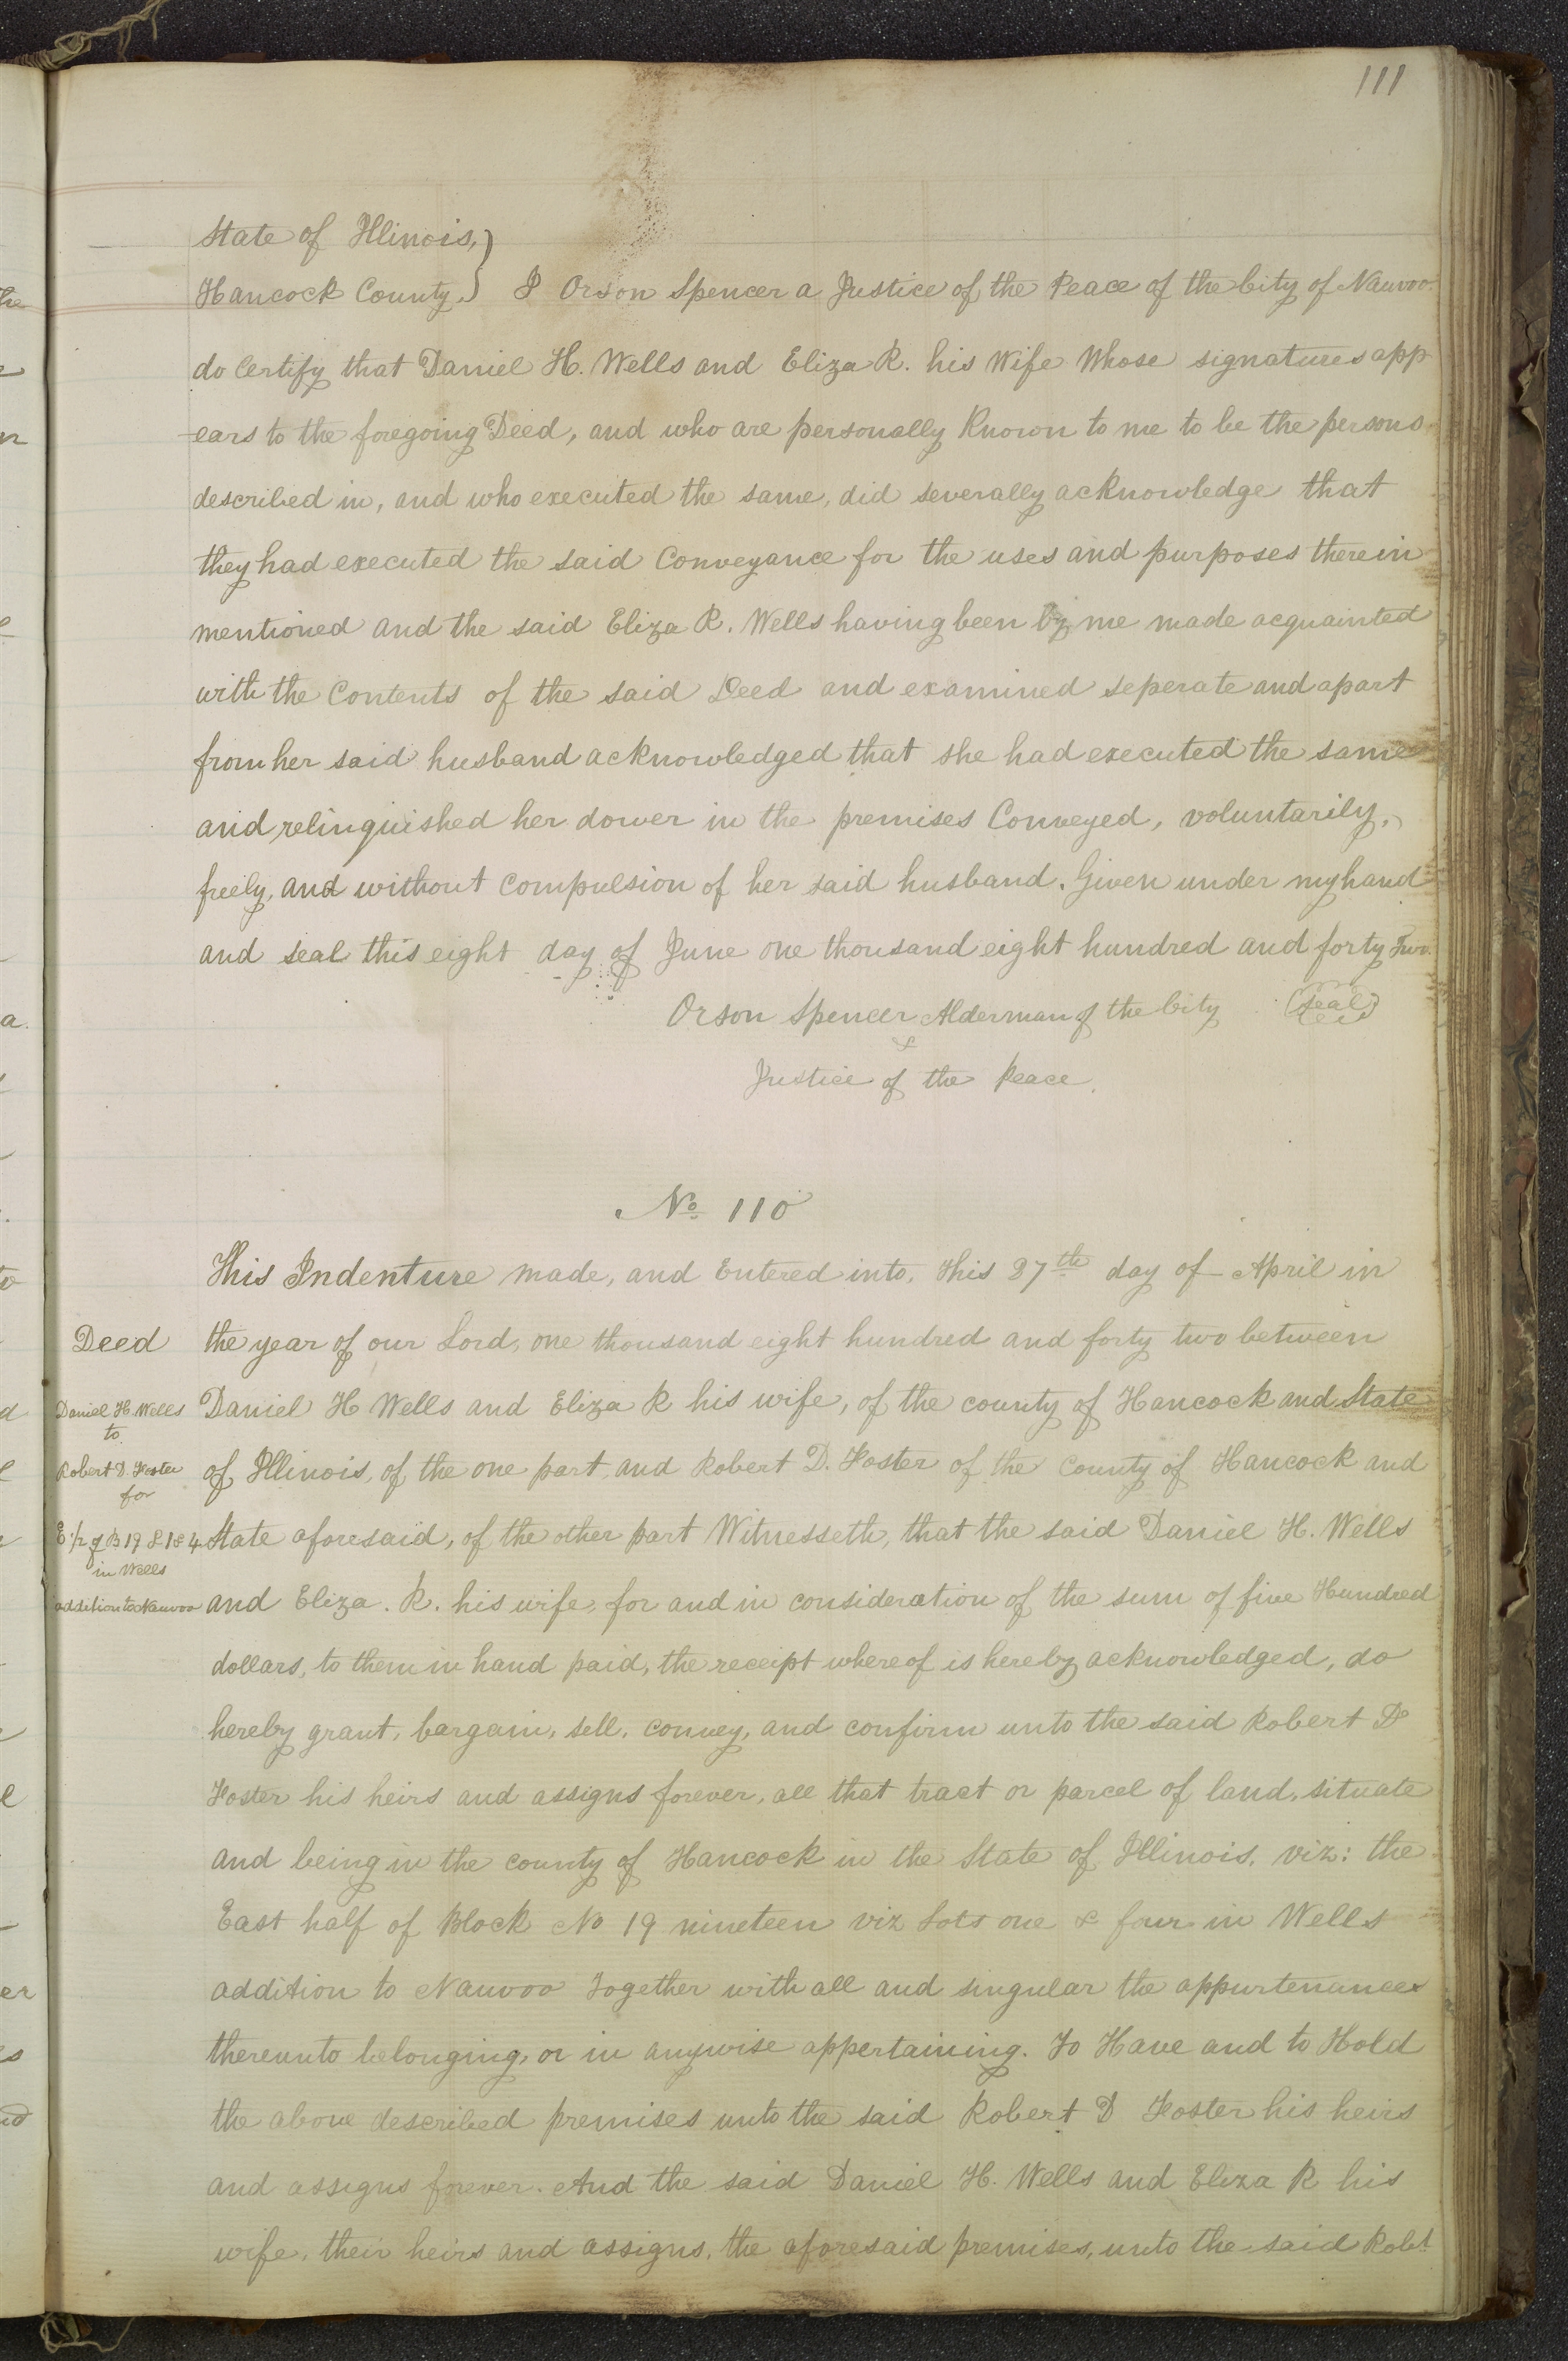 111
State of Illinois, }
Hancock County. } I Orson Spencer a Justice of the Peace of the City of Nauvoo.
do Certify that Daniel H. Wells and Eliza R. his Wife Whose signatures app
-ears to the foregoing Deed, and who are personally Known to me to be the persons
described in, and who executed the same, did severally acknowledge that
they had executed the said Conveyance for the uses and purposes therein
mentioned and the said Eliza R. Wells having been by me made acquainted
with the Contents of the said Deed and examined seperate and apart
from her said husband acknowledged that she had executed the same
and relinquished her dower in the premises Conveyed, voluntarily,
freely, and without Compulsion of her said husband. Given under my hand
and seal this eight day of June one thousand eight hundred and forty Two.
Orson Spencer Alderman of the City (Seal)
&
Justice of the Peace.
No 110
This Indenture made, and Entered into, this 27th day of April in
Deed
the year of our Lord, one thousand eight hundred and forty two between
Daniel H. Wells
to
Daniel H Wells and Eliza R his wife, of the county of Hancock and State
Robert D. Foster
for
of Illinois, of the one part, and Robert D. Foster of the County of Hancock and
E 1/2 of B 19 & 1 & 4
in Wells
State aforesaid, of the other part Witnesseth, that the said Daniel H. Wells
addition to Nauvoo
and Eliza. R. his wife, for and in consideration of the sum of five Hundred
dollars, to them in hand paid, the receipt whereof is hereby acknowledged, do
hereby grant, bargain, sell, convey, and confirm unto the said Robert D
Foster his heirs and assigns forever, all that tract or parcel of land, situate
and being in the county of Hancock in the State of Illinois, viz: the
East half of Block No 19 nineteen viz Lots one & four in Wells
addition to Nauvoo Together with all and singular the appurtenances
thereunto belonging, or in anywise appertaining. To Have and to Hold
the above described premises unto the said Robert D Foster his heirs
and assigns forever. And the said Daniel H. Wells and Eliza R his
wife, their heirs and assigns, the aforesaid premises, unto the said Robt